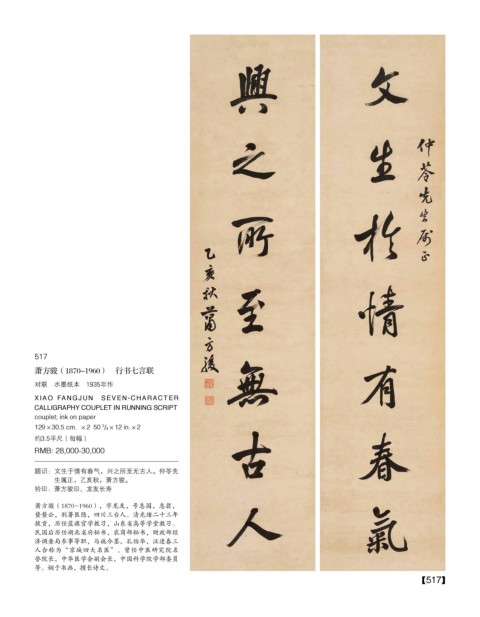 文生於情有春氣
仲苓先生属正
興之所至無古人
乙亥秋蕭方駿
517
萧方骏（1870-1960） 行书七言联
对联 水墨纸本 1935年作
XIAO FANGJUN SEVEN-CHARACTER
CALLIGRAPHY COUPLET IN RUNNING SCRIPT
couplet; ink on paper
129×30.5 cm. ×2 50 3/4×12 in.×2
约3.5平尺（每幅）
RMB: 28,000-30,000
题识：文生于情有春气，兴之所至无古人。仲苓先
生属正，乙亥秋，萧方骏。
钤印：萧方骏印、龙友长寿
萧方骏（1870-1960），字龙友，号息园、息翁、
蛰蛰公，别署医隐，四川三台人。清光绪二十三年
拔贡，历任蓝旗官学教习，山东省高等学堂教习。
民国后历任湖北省府秘书，农商部秘书，财政部经
济调查局参事等职，与施今墨、孔伯华、汪逢春三
人合称为“京城四大名医”。曾任中医研究院名
誉院长，中华医学会副会长，中国科学院学部委员
等。娴于书画，擅长诗文。
【517】